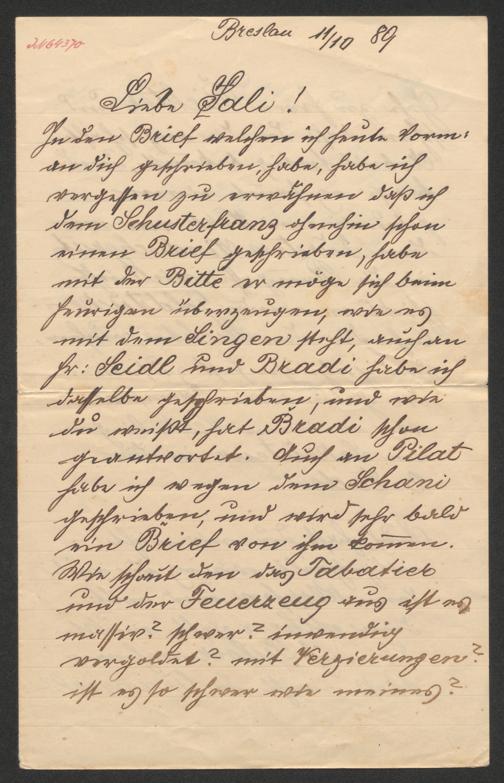 Breslau 11/10 89
Liebe Sali!
In den Brief welchen ich heute Vorm:
an dich geschrieben, habe, habe ich
vergessen zu erwähnen daß ich
dem Schusterfranz ohnehin schon
einen Brief geschrieben, habe
mit der Bitte er möge sich beim
heurigen überzeugen, wie es
mit dem Singen steht, auch an
Fr: Seidl und Bradi habe ich
dasselbe geschrieben, und wie
du weißt, hat Bradi schon
geantwortet. Auch an Pilat
habe ich wegen dem Schani
geschrieben, und wird sehr bald
ein Brief von ihm kom̅en.
Wie schaut den das Tabatier
und der Feuerzeug aus ist es
massiv? schwer? inwendig
vergoldet? mit Verzierungen?
ist es so schwer wie meines?